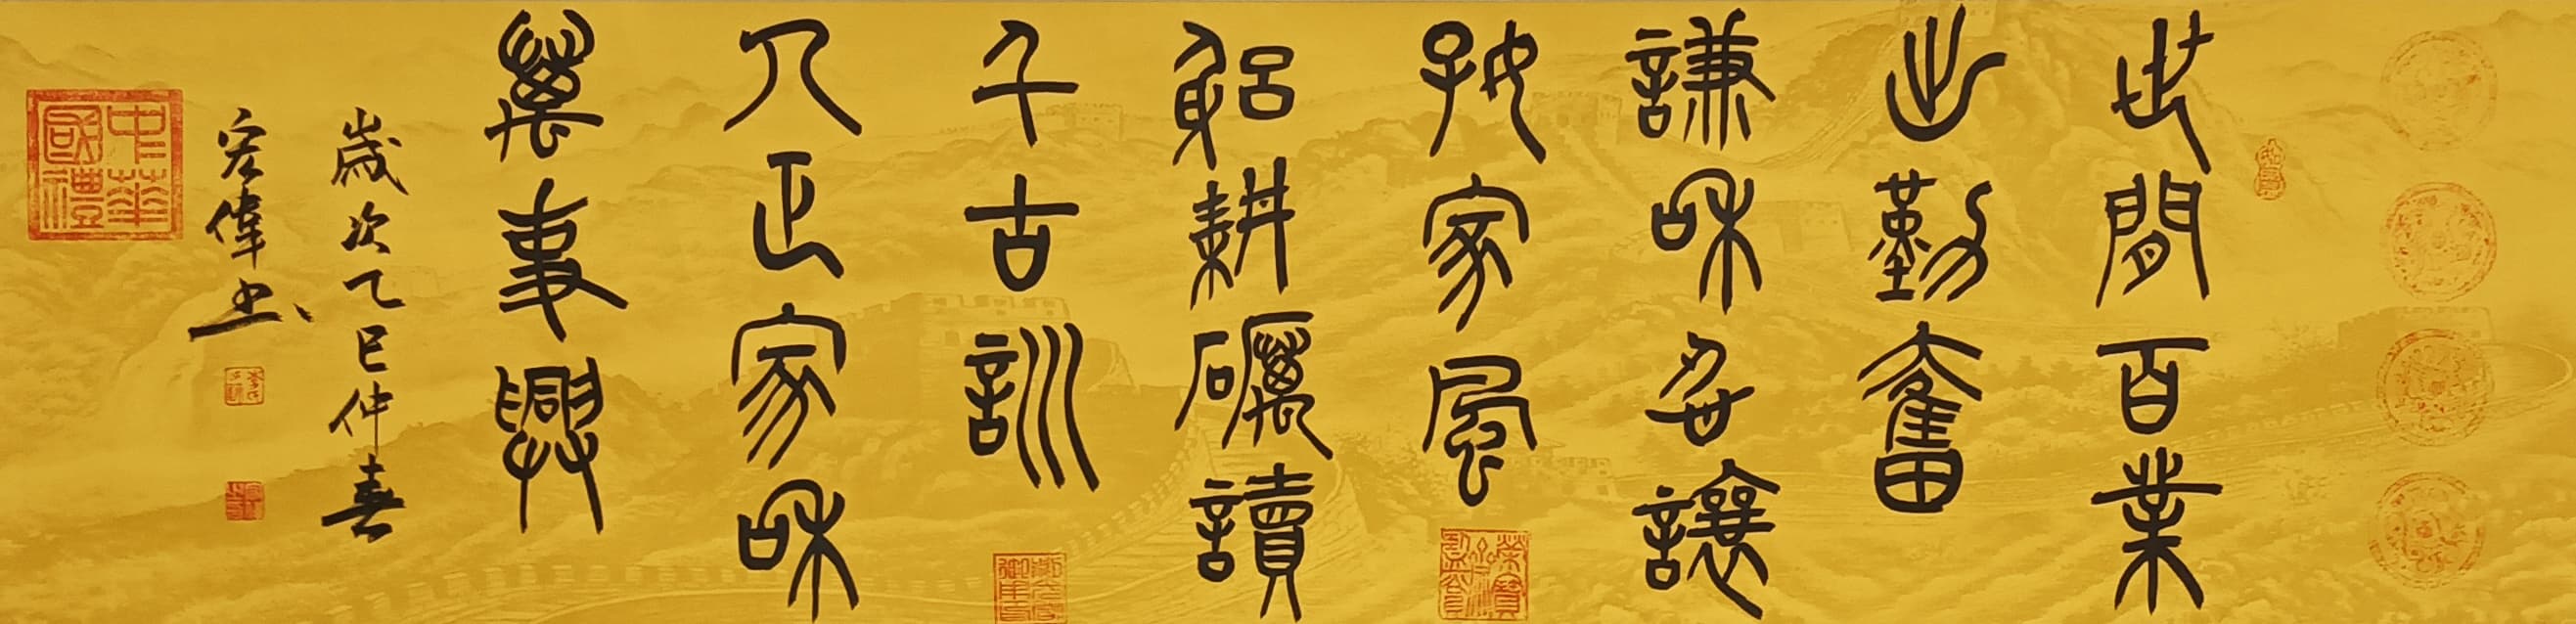 世間百業
出勤奮
謙和讓
好家風
躬耕礪讀
千古訓
人正家和
萬事興
歲次乙巳仲春
宏偉書
中華國禮